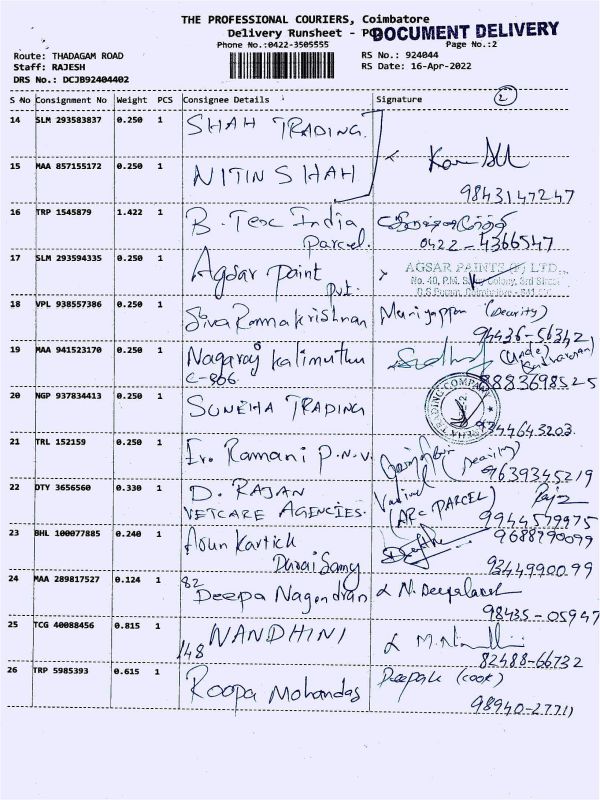 THE PROFESSIONAL COURIERS, Coimbatore
Delivery Runsheet - POD
DOCUMENT DELIVERY
Phone No.:0422-3505555
Page No.:2
Route: THADAGAM ROAD
RS No.: 924044
Staff: RAJESH
RS Date: 16-Apr-2022
DRS No.: DCJB92404402
2
S No Consignment No Weight PCS Consignee Details Signature
14 SLM 293583837 0.250 1 SHAH TRADING
15 MAA 857155172 0.250 1 NITIN SHAH
98431 47247
16 TRP 1545879 1.422 1 B. Tesc India
Parcel.
0422 - 4366547
17 SLM 293594335 0.250 1 Agsar Paint
Pvt.
AGSAR PAINTS (P) LTD.,
No. 40, P.M. Colony, 3rd Street
18 VPL 938557386 0.250 1 Siva Ramakrishnan Muniyappan (Security)
94436-56342
19 MAA 941523170 0.250 1 Nagaraj Kalimuthu
C-806
8883698525
20 NGP 937834413 0.250 1 SUNEHA TRADING
TRADING COMPANY
9344643203
21 TRL 152159 0.250 1 Er. Ramani P.N.V.
(Security)
9639345219
22 DTY 3656560 0.330 1 D. RAJAN
VETCARE AGENCIES.
(ARC PARCEL)
9944579975
23 BHL 100077885 0.240 1 Arun Kartick
Durai Samy
9688790099
9344990099
24 MAA 289817527 0.124 1 82
Deepa Nagendran
98435-05947
25 TCG 40088456 0.815 1 NANDHINI
148
82488-66732
26 TRP 5985393 0.615 1 Roopa Mohandas
Deepak (cook)
98940-27711